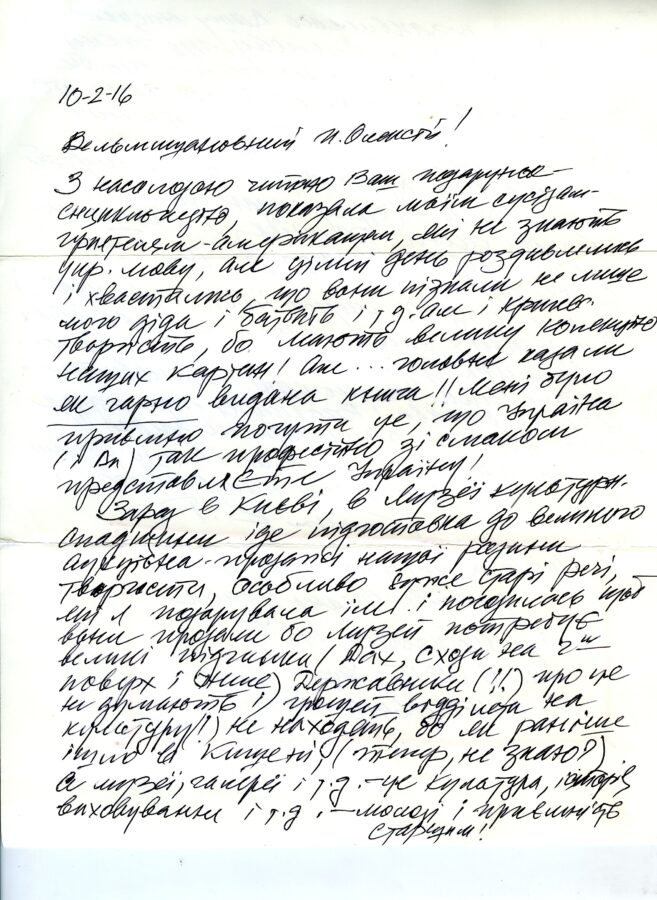 10-2-16
Вельмишановний п. Олексій!
З насолодою читаю Ваш подарунок-
енциклопедію, показала моїм сусідам-
приятелям-американцям, які не знають
укр. мову, але цілий день роздивлялись
і хвастались, що вони пізнали не лише
мого діда і батьків і т.д. але і
творчість, бо мають велику колекцію
наших картин! Але... головне казали
як гарно видана книга!! Мені було
приємно почути це, що Україна
(і Ви) так професійно зі смаком
представляєте Україну!
Зараз в Києві, в Музеї культурн.
спадщини іде підготовка до великого
аукціона-продажі нашої родини
творчости, особливо дуже старі речі,
які я подарувала їм і погодилась щоб
вони продали бо музей потребує
великі (Дах, сходи на 2ий
поверх і инше) Державники (!!) про це
не думають і грошей на
культуру!) не находять, бо як раніше
ішло в кишені, (тепер, не знаю?)
А музеї, галереї і т.д. - це культура, історія,
виховування і т.д. - молоді і приємність
старшим!